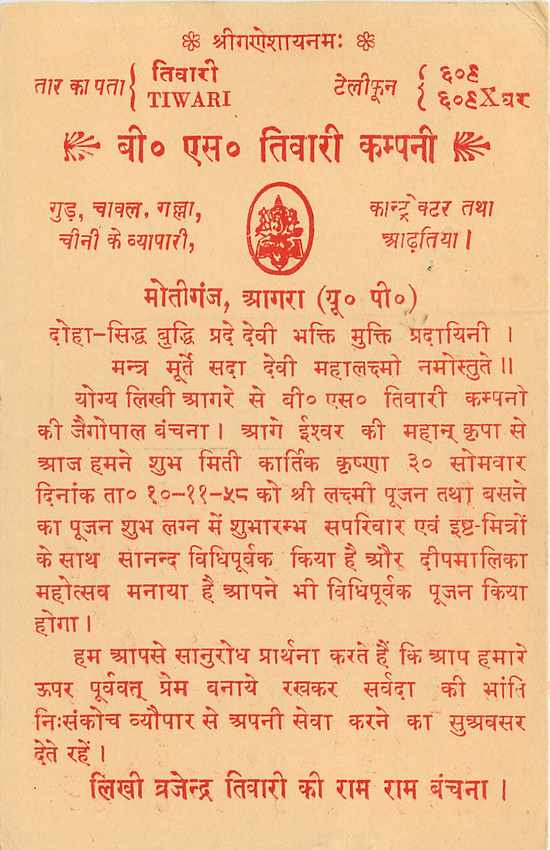 ❀ श्रीगणेशायनमः ❀
तार का पता { तिवारी TIWARI
टेलीफून { ६०९ ६०९Xघर
बी० एस० तिवारी कम्पनी
गुड़, चावल, गल्ला, कान्ट्रेक्टर तथा
चीनी के व्यापारी, आढ़तिया।
मोतीगंज, आगरा (यू० पी०)
दोहा-सिद्ध बुद्धि प्रदे देवी भक्ति मुक्ति प्रदायिनी ।
मन्त्र मूर्ते सदा देवी महालक्ष्मी नमोस्तुते ॥
योग्य लिखी आगरे से बी० एस० तिवारी कम्पनी
की जैगोपाल बंचना । आगे ईश्वर की महान् कृपा से
आज हमने शुभ मिती कार्तिक कृष्णा ३० सोमवार
दिनांक ता० १०-११-५८ को श्री लक्ष्मी पूजन तथा बसने
का पूजन शुभ लग्न में शुभारम्भ सपरिवार एवं इष्ट-मित्रों
के साथ सानन्द विधिपूर्वक किया है और दीपमालिका
महोत्सव मनाया है आपने भी विधिपूर्वक पूजन किया
होगा ।
हम आपसे सानुरोध प्रार्थना करते हैं कि आप हमारे
ऊपर पूर्ववत् प्रेम बनाये रखकर सर्वदा की भांति
निःसंकोच व्यौपार से अपनी सेवा करने का सुअवसर
देते रहें ।
लिखी व्रजेन्द्र तिवारी की राम राम बंचना ।